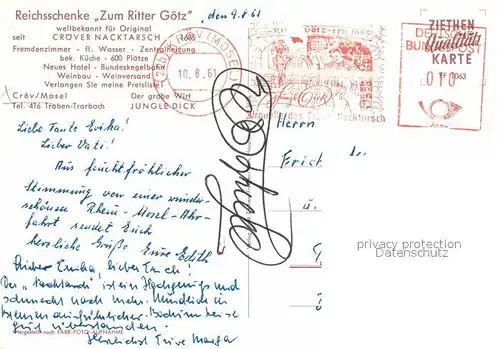 Reichsschenke „Zum Ritter Götz", den 9.8.61
weltbekannt für Original
seit CRÖVER NACKTARSCH 1685
Fremdenzimmer - fl. Wasser - Zentralheizung
bek. Küche - 600 Plätze
Neues Hotel - Bundeskegelbahn
Weinbau - Weinversand
Verlangen Sie meine Preisliste!
Cröv/Mosel Der grobe Wirt
Tel. 416 Traben-Trarbach JUNGLE DICK
CRÖV (MOSEL)
10.8.61
Jungle Dick
Urquelle des Cröver Nacktarsch
ZIETHEN
Qualitäts
KARTE
DEUTSCHE
BUNDESPOST
010
Liebe Tante Erika!
Lieber Vati!
Aus feuchtfröhlicher
Stimmung von einer wunder-
schönen Rhein-Mosel-Ahr-
fahrt sendet Euch
herzliche Grüße Eure Edith
Lieber Erich!
Der „Nacktarsch" ist ein Hochgenuß und
schmeckt nach mehr. Mündlich in
Bremen ausführlicher.
gut überstanden.
Herzlichst Eure Marga
Herrn
Erich
u.
Hergestellt nach FARB-FOTO-AUFNAHME
privacy protection
Datenschutz